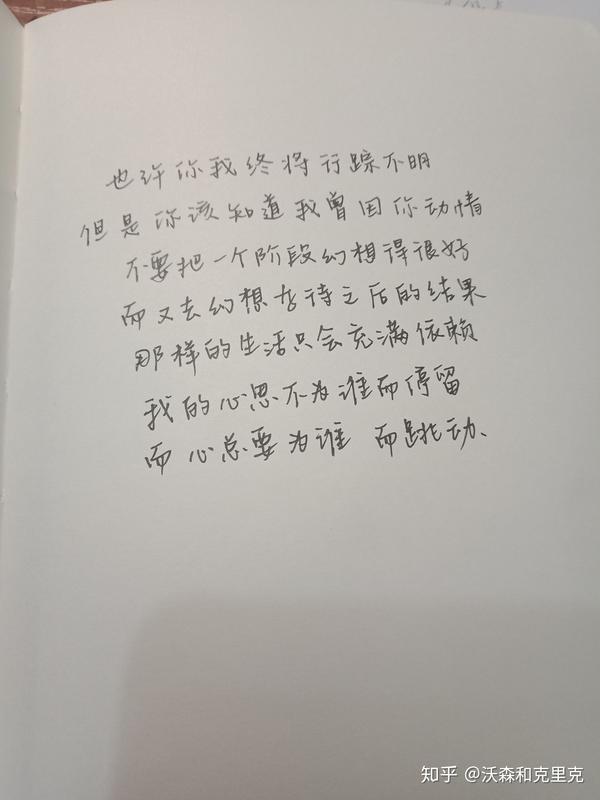 也许你我终将行踪不明
但是你该知道我曾因你动情
不要把一个阶段幻想得很好
而又去幻想等待之后的结果
那样的生活只会充满依赖
我的心思不为谁而停留
而心总要为谁 而跳动、
知乎 @沃森和克里克